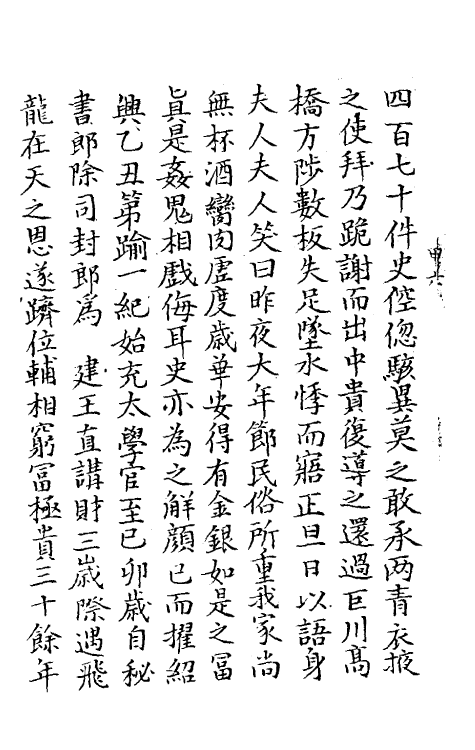 四百七十件史倥偬駭異莫之敢承两青衣掖
之使拜乃跪謝而出中貴復導之還過巨川髙
橋方陟數板失足墜水悸而寤正旦日以語身
夫人夫人笑曰昨夜大年節民俗所重我家尚
無杯酒臠肉虚度歲華安得有金銀如是之冨
真是姦鬼相戲侮耳史亦為之解顔已而擢紹
興乙丑第踰一紀始充太學官至已卯歲自秘
書郎除司封郎爲　建王直講財三歲際遇飛
龍在天之恩遂躋位輔相窮冨極貴三十餘年